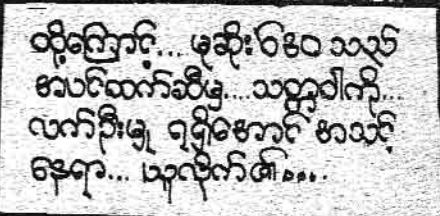 ထို့ကြောင့်... မုဆိုးဝေဝေသည်
စာပင်ထက်ဆီမှ....သတ္တဝါကို...
လက်ဦးမှု ရရှိအောင် အသင့်
နေရာ... ယူလိုက်၏....